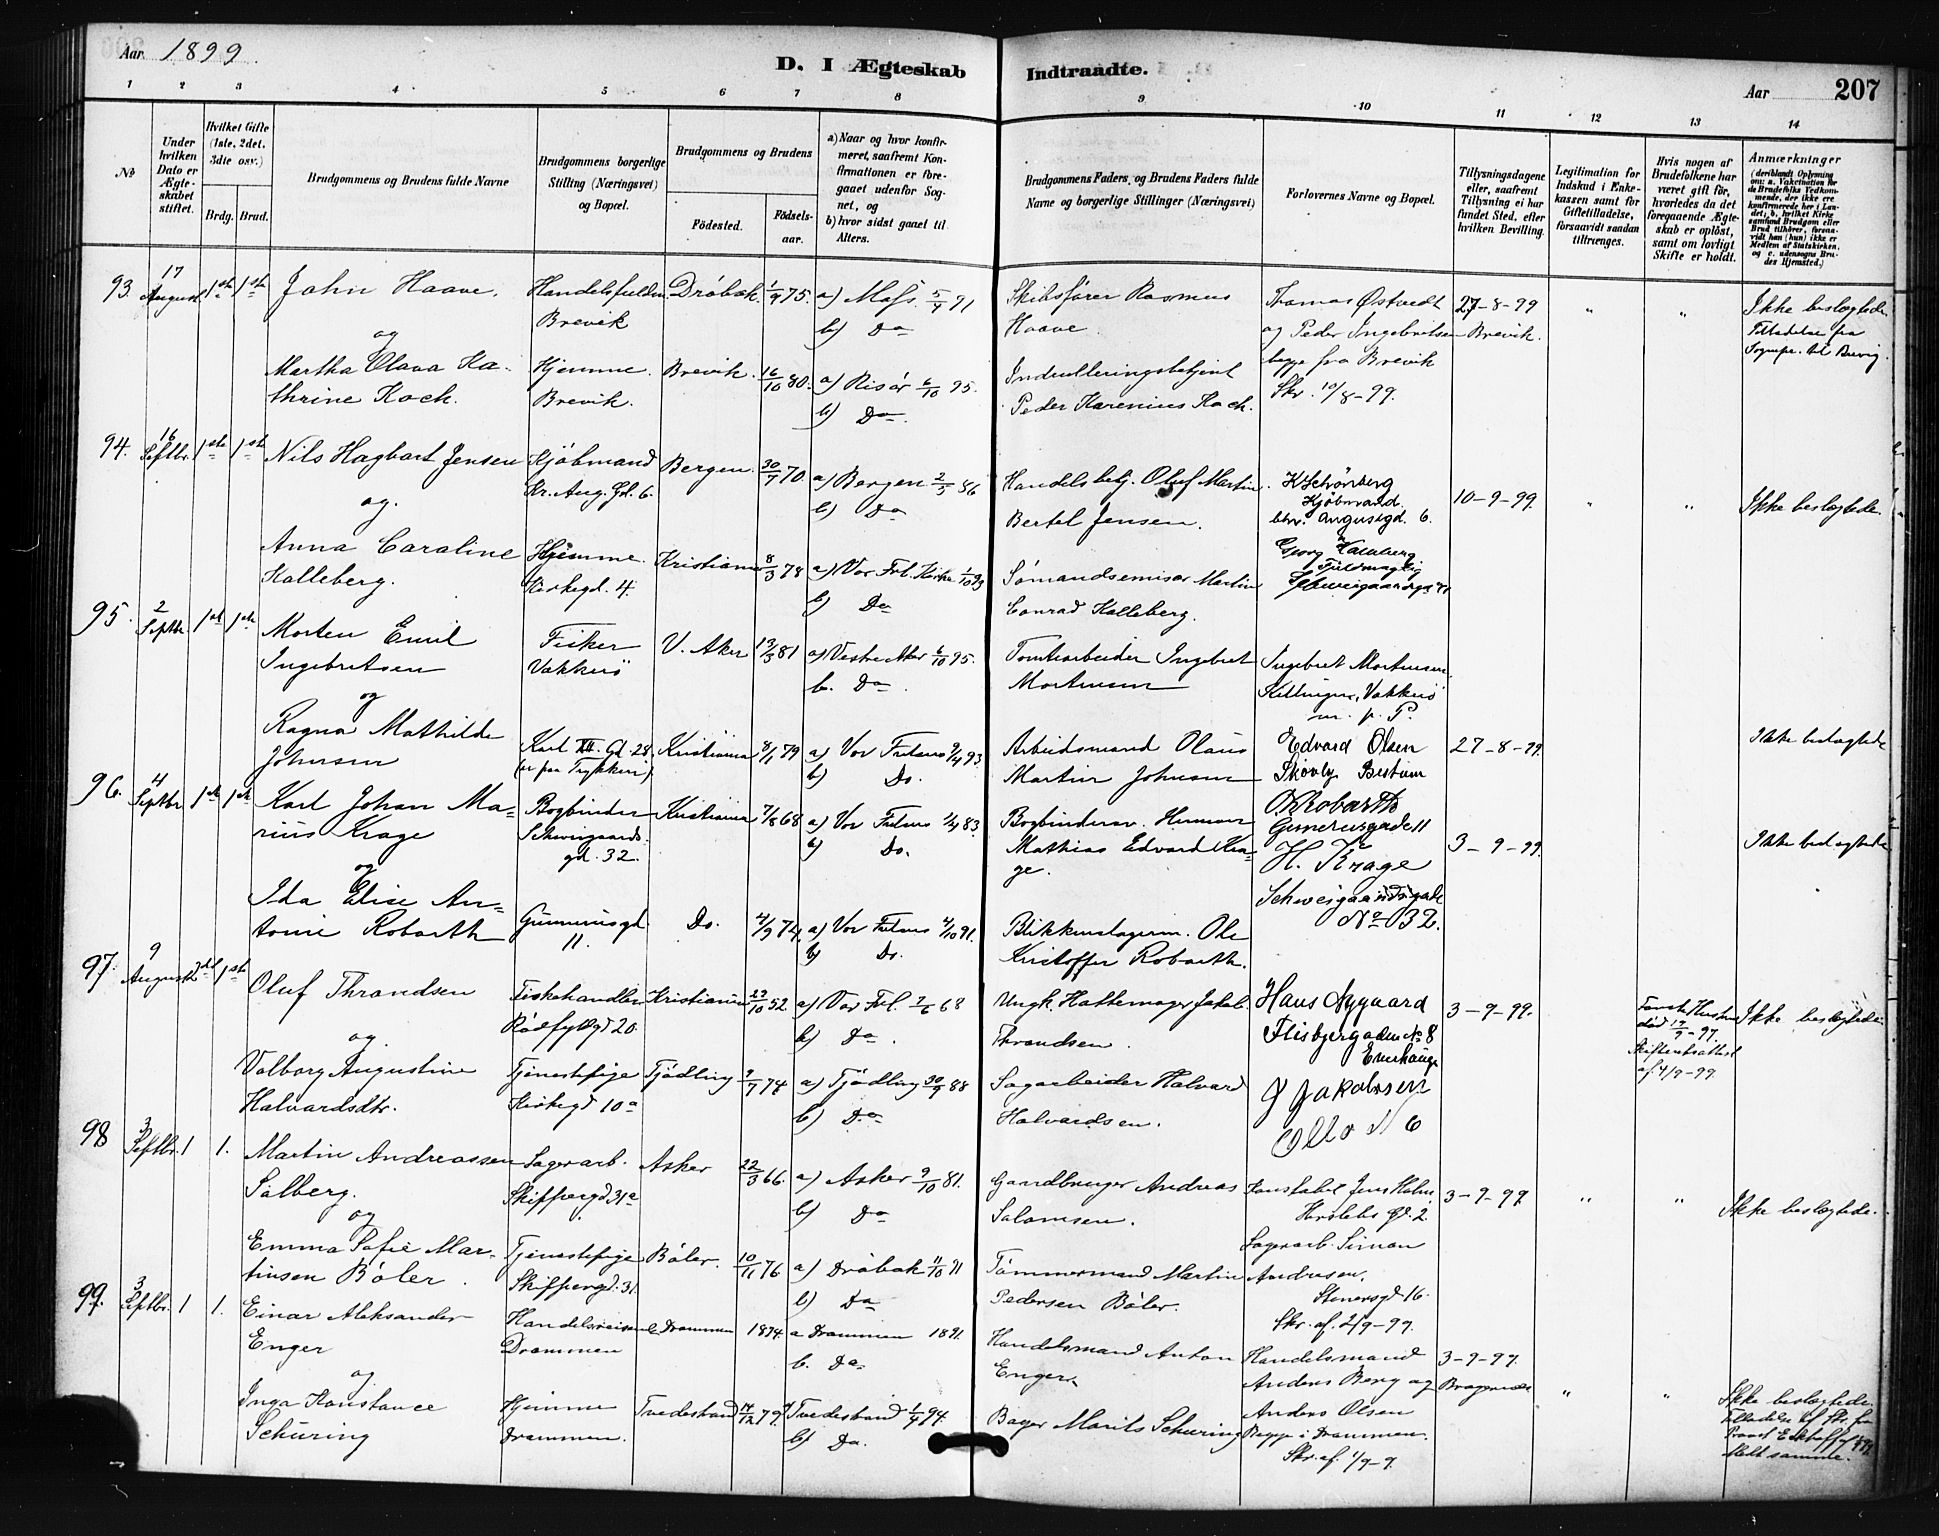 Aar 1899.
D. I Ægteskab Indtraadte.
Aar 207
1 2 3 4 5 6 7 8 9 10 11 12 13 14
No
Under hvilken Dato er Ægteskabet stiftet.
Hvilket Gifte (1ste, 2det, 3die osv.)
Brdg. Brud.
Brudgommens og Brudens fulde Navne
Brudgommens borgerlige Stilling (Næringsvei) og Bopæl.
Brudgommens og Brudens
Födested.
Födselsaar.
a) Naar og hvor konfirmeret, saafremt Konfirmationen er foregaaet udenfor Sognet, og
b) hvor sidst gaaet til Alters.
Brudgommens Faders og Brudens Faders fulde Navne og borgerlige Stillinger (Næringsvei)
Forlovernes Navne og Bopæl.
Tillysningsdagene eller, saafremt Tillysning ei har fundet Sted, efter hvilken Bevilling.
Legitimation for Indskud i Enkekassen samt for Giftetilladelse, forsaavidt saadan tiltrænges.
Hvis nogen af Brudefolkene har været gift för, hvorledes da det foregaaende Ægteskab er oplöst, samt om lovligt Skifte er holdt.
Anmærkninger
93. 17 August 1ste 1ste John Haave.
og
Martha Olava Kathrine Koch.
Brevik
Hjemme. Brevik.
Dröbak. 1/9 75.
Brevik. 16/10 80.
a) Moss. 5/4 91
b) Do
a) Risör 6/10 95.
b) Do
Skibsförer Rasmus Haave.
Peder Karenius Koch.
Thomas Östvedt
og Peder Ingebritsen
begge fra Brevik
Skr. 10/8-99.
27-8-99
Brevik.
" "
Ikke beslægtede.
94. 16 Septbr. 1ste 1ste Nils Hagbart Jensen
og.
Anna Caroline Kalleberg.
Kjöbmand
Kr. Aug. Gd. 6.
Hjemme.
Kirkegd. 4.
Bergen. 30/7 70.
Kristiania 8/3 78
a) Bergen 2/5 86
b) Do
a) Vor Frl. Kirke 1/10 93
b) Do
Handelsbetj. Oluf Martin
Bertel Jensen.
Sömandsemisær Martin
Conrad Kalleberg.
K Schönberg
Kjöbmand.
Chr. Augustgd. 6.
10-9-99.
" "
Ikke beslægtede.
95. 2 Septbr 1ste 1ste Morten Emil
Ingebretsen
og
Ragna Mathilde
Johnsen
Fisker
Vækkerö
Karl XII. Gd. 28.
V. Aker 13/3 81
Kristiania 8/1 79
a) Vestre Aker 6/10 95.
b. Do.
a) Vor Frelsers 9/4 93.
b) Do.
Tomtearbeider Ingebret
Mortensen
Arbeidsmand Olaus
Martin Johnsen
Ingebret Mortensen
Killingen, Vækkerö
m. p. P.
Edvard Olsen
Skovly Bestum
27-8-99.
Ikke beslægtede
96. 4 Septbr 1ste 1ste Karl Johan Marius
Krage
og
Ida Elise Antonie
Robarth
Bogbinder
Schweigaardsgd. 32.
Gunnerusgd. 11.
Kristiania 7/8 68
Do. 4/9 74.
a) Vor Frelsers 1/4 83.
b) Do.
a) Vor Frelsers 4/10 91.
b) Do.
Bogbindersv. Herman
Mathias Edvard Krage.
Blikkenslagerm. Ole
Kristoffer Robarth.
O Robarth
Gunerusgade 11
H. Krage
Schweigaardsgade
No 32.
3-9-99.
Ikke beslægtede
97. 9 August 2det 1ste Oluf Thrandsen
og
Valborg Augustine
Halvardsdtr.
Fiskehandler
Rödfyldgd 20.
Tjenestepige
Kirkegd 10a
Kristiania 23/10 52.
Tjödling 9/7 74
a) Vor Frl. 7/6 68
b) Do.
a) Tjödling 30/9 88
b) Do
Ungk. Hattemager Jakob
Thrandsen.
Sagarbeider Halvard
Halvardsen.
Hans Nygaard
Flisbjergaden No 8
Enerhaugen
J Jakobsen
3-9-99.
Förste Hustru
död 17/9-97.
Skifteretsattest
af 4/9-99.
Ikke beslægtede.
98 3 Septbr. 1 1. Martin Andreassen
Solberg.
og
Emma Sofie Martinsen
Böler.
Lagerarb.
Skippergd 31a
Tjenestepige
Skippergd. 31
Asker 22/3 66.
Böler. 10/11 76
a) Asker 9/10 81.
b) Do
a) Dröbak 11/10 91
b) Do
Gaardbruger Andreas
Salomsen.
Tömmermand Martin
Pedersen Böler.
Konstabel Jens Holm.
Herslebs Gd. 2.
Lagerarb. Simon
Andersen.
Stenersgd 16.
Skr. af. 2/9-99.
3-9-99.
" "
Ikke beslægtede.
99. 3 Septbr. 1 1. Einar Aleksander
Enger
og
Inga Konstance
Schüring
Handelsreisende
Drammen
Hjemme
Drammen.
Drammen 1874.
Tvedestrand 14/12 79.
a Drammen 1891.
b. Do
Tvedestrand 1/4 94.
b) Do.
Handelsmand Anton
Enger.
Bager Morits Schuring
Handelsmand
Anders Berg og
Anders Olsen
Begge i Drammen.
Skr. af. 1/9-9.
3-9-99.
Bragernæs
" "
Ikke beslægtede.